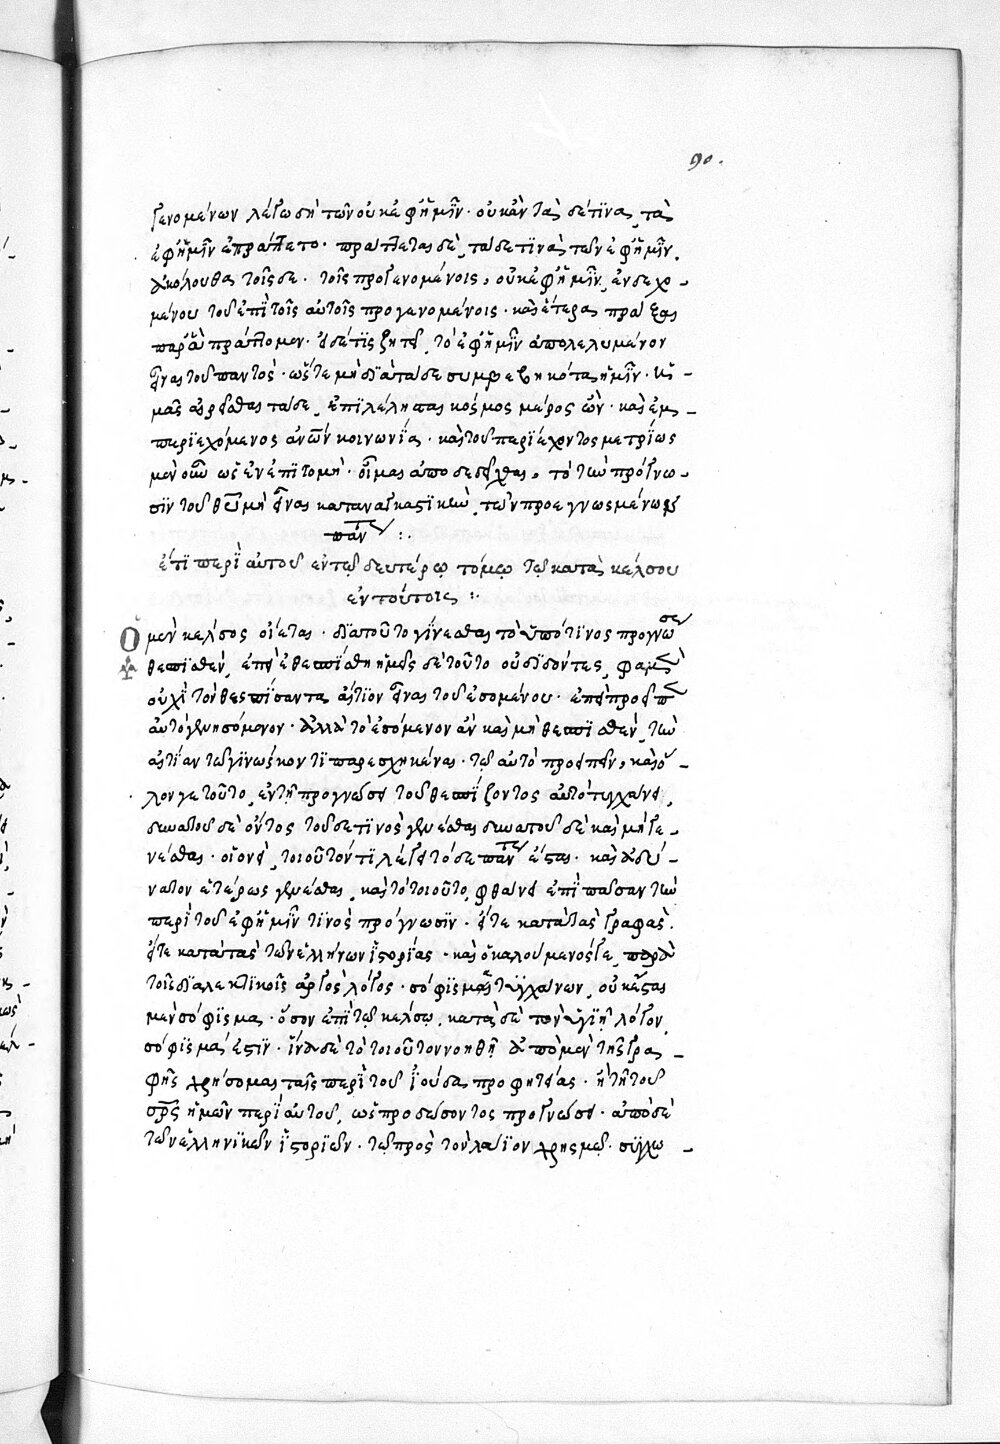 90.
γενομένων λέγω δὴ τῶν οὐκ ἐφ' ἡμῖν· οὐκ ἂν τάδε τινα τὰ
ἐφ' ἡμῖν ἐπράττετο· πράττεται δὲ τάδε τινὰ τῶν ἐφ' ἡμῖν
ἀκόλουθα τοῖσδε τοῖς προγενομένοις, οὐκ ἐφ' ἡμῖν, ἐνδεχο-
μένου τοῦ ἐπὶ τοῖς αὐτοῖς προγενομένοις καὶ ἕτερα πρᾶξαι
παρ' ἃ πράττομεν· εἰ δέ τις ζητεῖ τὸ ἐφ' ἡμῖν ἀπολελυμένον
εἶναι τοῦ παντὸς· ὥστε μὴ διὰ τάδε συμβεβηκότα ἡμῖν ἡ-
μᾶς αἱρεῖσθαι τάδε, ἐπιλέλησται κόσμος μέρος ὢν· καὶ ἐμ-
περιεχόμενος ἀνῶν κοινωνίᾳ· καὶ τοῦ περιέχοντος μετρίως
μὲν οὖν ὡς ἐν ἐπιτομῇ· οἶμαι ἀποδεδεῖχθαι, τὸ τὴν πρόγνω-
σιν τοῦ θῦ μὴ εἶναι καταναγκαστικὴν τῶν προεγνωσμένων
πάντ :·
ἔτι περὶ αὐτοῦ ἐν τῷ δευτέρῳ τόμῳ τῷ κατὰ κέλσου
ἐν τούτοις :·
Ὁ μὲν κέλσος οἴεται· διατοῦτο γίνεσθαι τὸ ὑπό τινος προγνώσει
θεσπισθὲν, ἐπεὶ ἐθεσπίσθη ἡμεῖς δὲ τοῦτο οὐ διδόντες, φαμὲν
οὐχὶ τὸν θεσπίσαντα αἴτιον εἶναι τοῦ ἐσομένου· ἐπεὶ προεῖπ
αὐτὸ γενησόμενον· ἀλλὰ τὸ ἐσόμενον ἂν καὶ μὴ θεσπισθὲν, τὴν
αἰτίαν τῷ γινώσκοντι παρεσχηκέναι· τῷ αὐτὸ προειπεῖν, καὶ ὅ-
λον γε τοῦτο, ἐν τῇ προγνώσει τοῦ θεσπίζοντος αὐτὸ τυγχάνει,
δυνατοῦ δὲ ὄντος τοῦδέ τινος γενέσθαι δυνατοῦ δὲ καὶ μὴ γε-
νέσθαι· οἷον εἰ, τοιοῦτόν τι λέγει τόδε πάντ ἔσται· καὶ ἀδύ-
νατον ἑτέρως γενέσθαι, καὶ τὸ τοιοῦτο φθάνει ἐπὶ πᾶσαν τὴν
περὶ τοῦ ἐφ' ἡμῖν τινὸς πρόγνωσιν· εἴτε κατὰ τὰς γραφὰς
εἴτε κατὰ τὰς τῶν ἑλλήνων ἱστορίας· καὶ ὁ καλούμενός γε παρὰ
τοῖς διαλεκτικοῖς ἀργὸς λόγος· σόφισμά τι τυγχάνων, οὐκ ἔσται
μὲν σόφισμα· ὅσον ἐπὶ τῷ κέλσῳ, κατὰ δὲ τὸν ὑγιῆ λόγον,
σόφισμά ἐστιν· ἵνα δὲ τὸ τοιοῦτον νοηθῇ ἀπὸ μὲν τῆς γρα-
φῆς χρήσομαι ταῖς περὶ τοῦ ἰούδα προφητείαις· ἢ τῇ τοῦ
σρς ἡμῶν περὶ αὐτοῦ, ὡς προδώσοντος προγνώσει· ἀπὸ δὲ
τῶν ἑλληνικῶν ἱστοριῶν· τῷ πρὸς τὸν λάϊον χρησμῷ· συγχω-